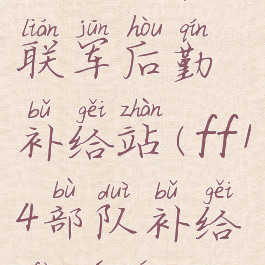 lián jūn hòu qín
联军后勤
bǔ gěi zhàn
补给站(ff1
bù duì bǔ gěi
4部队补给